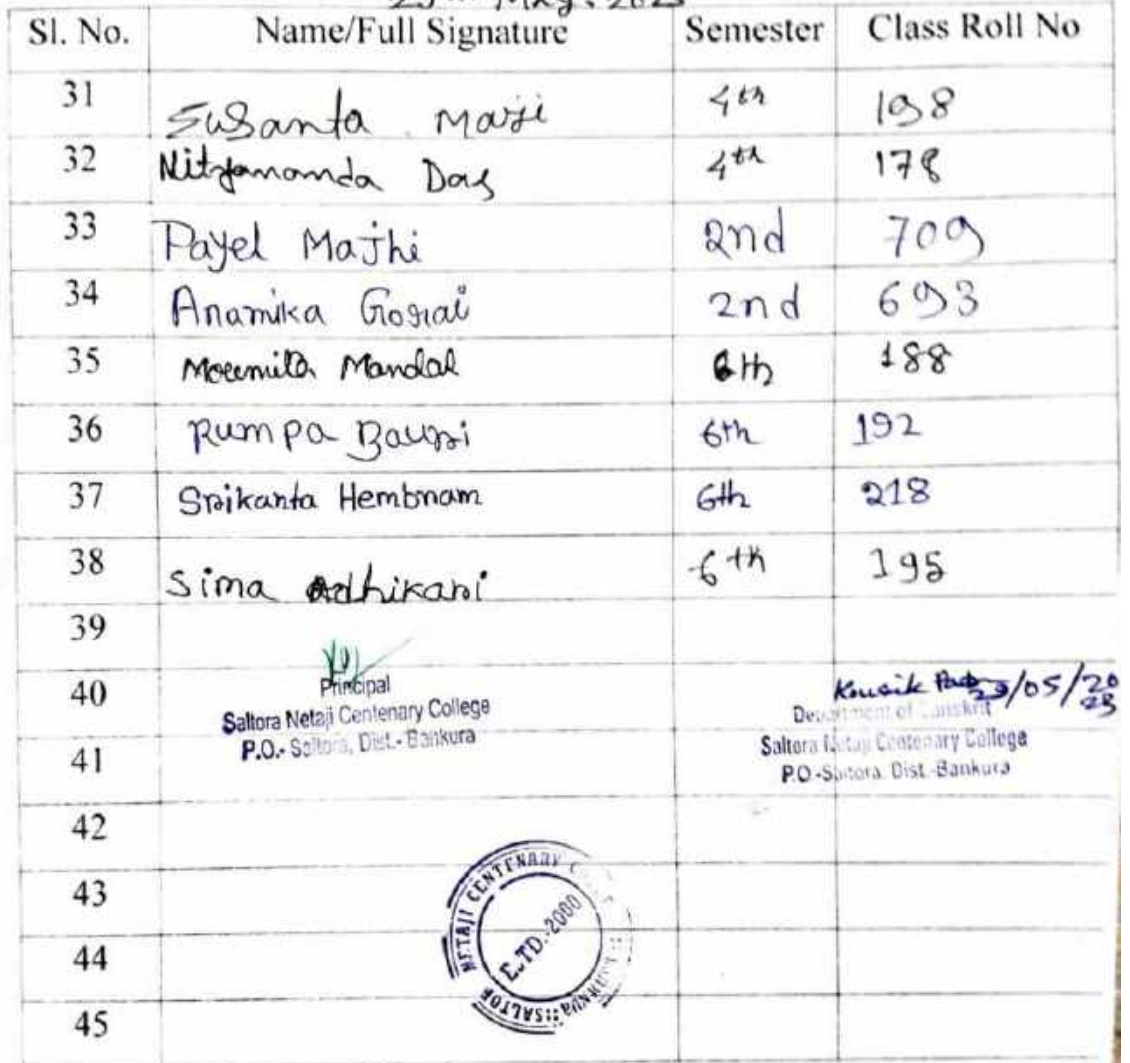 Sl. No. Name/Full Signature Semester Class Roll No
31 Susanta Maji 4th 198
32 Nityananda Das 4th 178
33 Payel Majhi 2nd 709
34 Anamika Gorai 2nd 693
35 Moumita Mandal 6th 188
36 Rumpa Bauri 6th 192
37 Srikanta Hembram 6th 218
38 Sima Adhikari 6th 195
39
40
Principal
Saltora Netaji Centenary College
P.O.- Saltora, Dist.- Bankura
Kousik /05/20
23
Department of Sanskrit
Saltora Netaji Centenary College
P.O-Saltora, Dist.-Bankura
41
42
43
44
45
NETAJI CENTENARY
ESTD.-2000